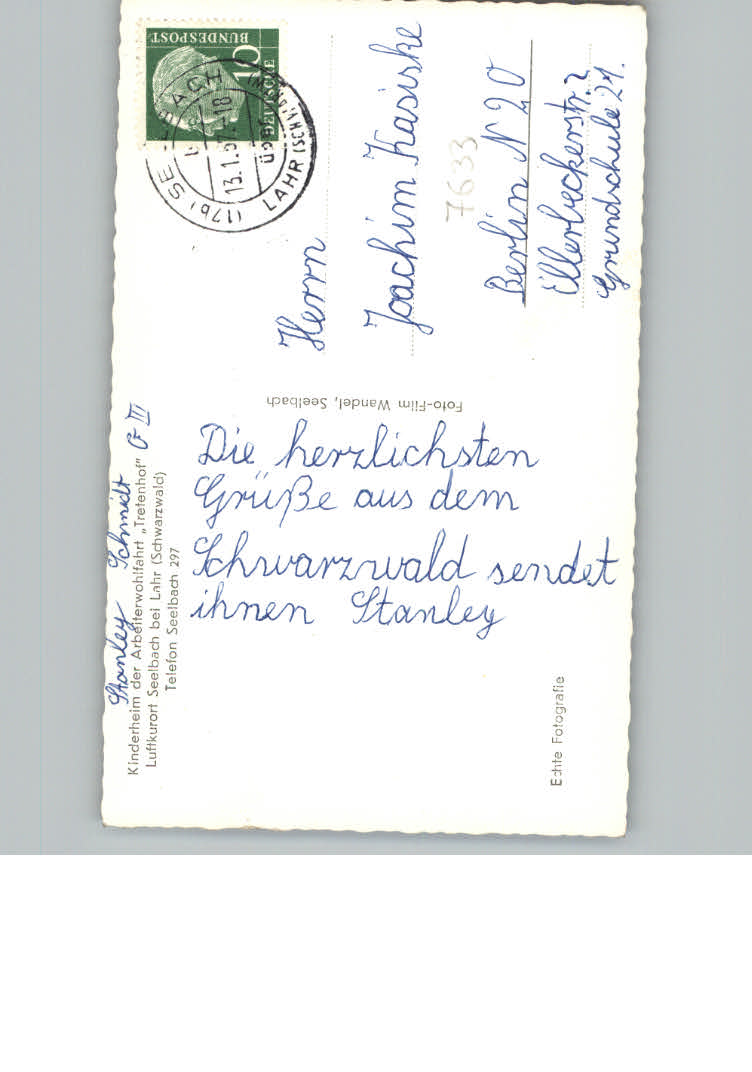 Stanley Schmidt G III
Kinderheim der Arbeiterwohlfahrt „Tretenhof"
Luftkurort Seelbach bei Lahr (Schwarzwald)
Telefon Seelbach 297
Die herzlichsten
Grüße aus dem
Schwarzwald sendet
ihnen Stanley
Foto-Film Wandel, Seelbach
Echte Fotografie
DEUTSCHE
BUNDESPOST
10
(17b) SEELBACH
13.1.57.-18
über
LAHR (SCHWARZWALD)
Herrn
Joachim Kasiske
7633
Berlin N 20
Ellerbeckerstr. 7
Grundschule 21.